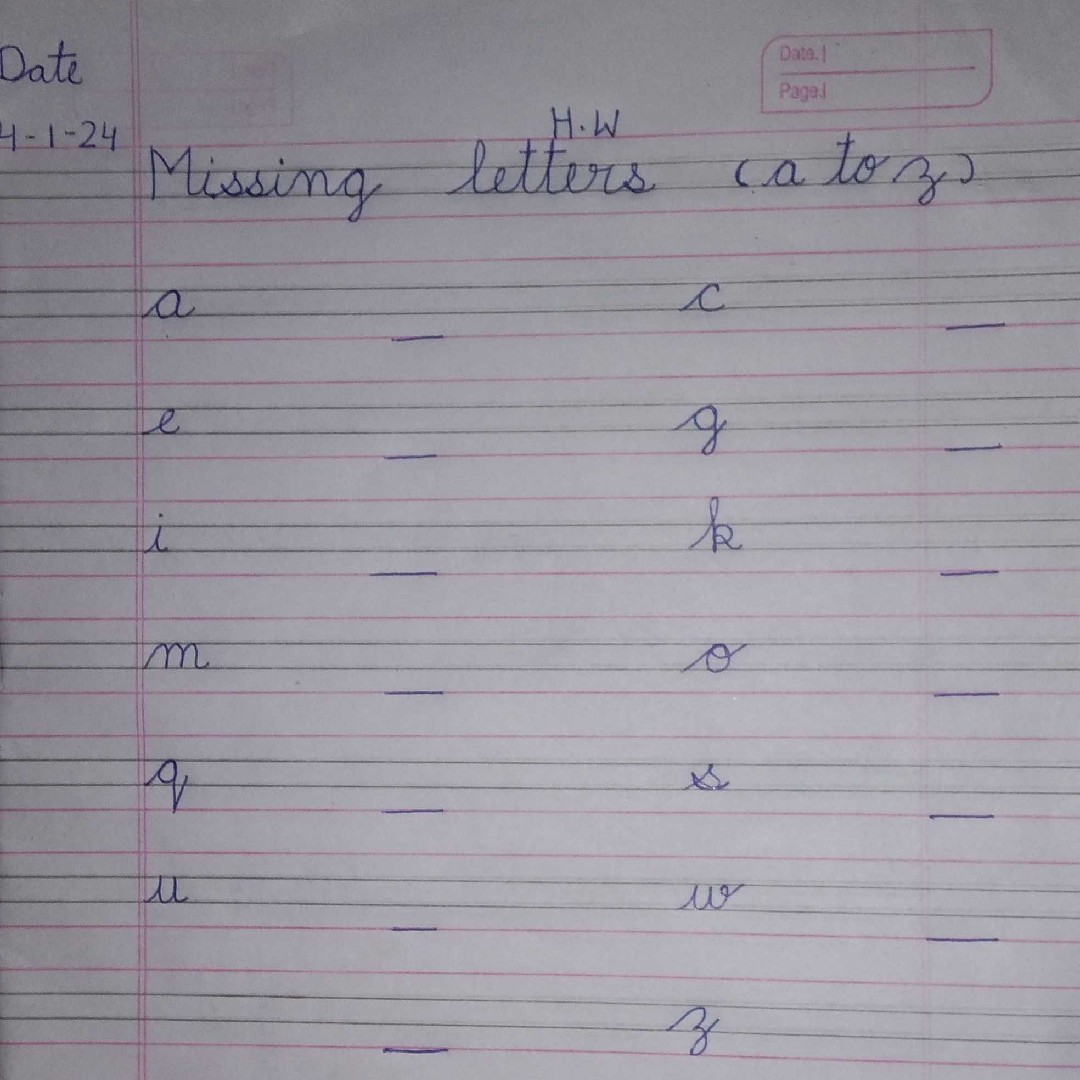 Date
Date.
Page.
H.W
4-1-24
Missing letters (a to z)
a _ c _
e _ g _
i _ k _
m _ o _
q _ s _
u _ w _
_ z